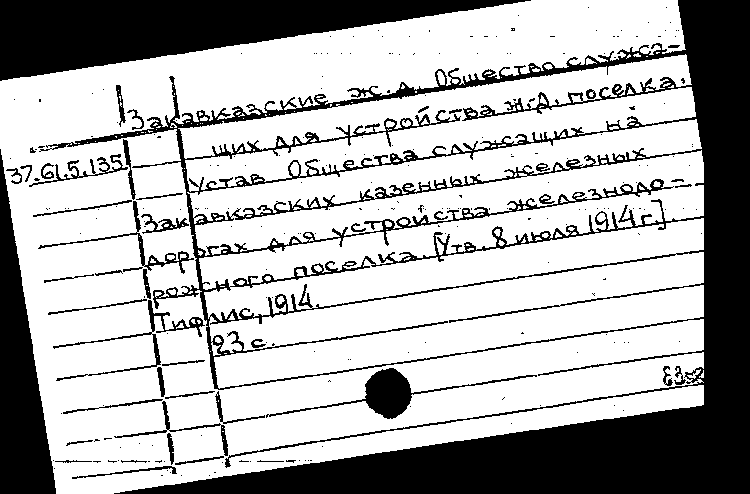 Закавказские ж.д. Общество служа-
щих для устройства ж.д. поселка.
37.61.5.135
Устав Общества служащих на
Закавказских казенных железных
дорогах для устройства железнодо-
рожного поселка. [Утв. 8 июля 1914 г.].
Тифлис, 1914.
23 с.